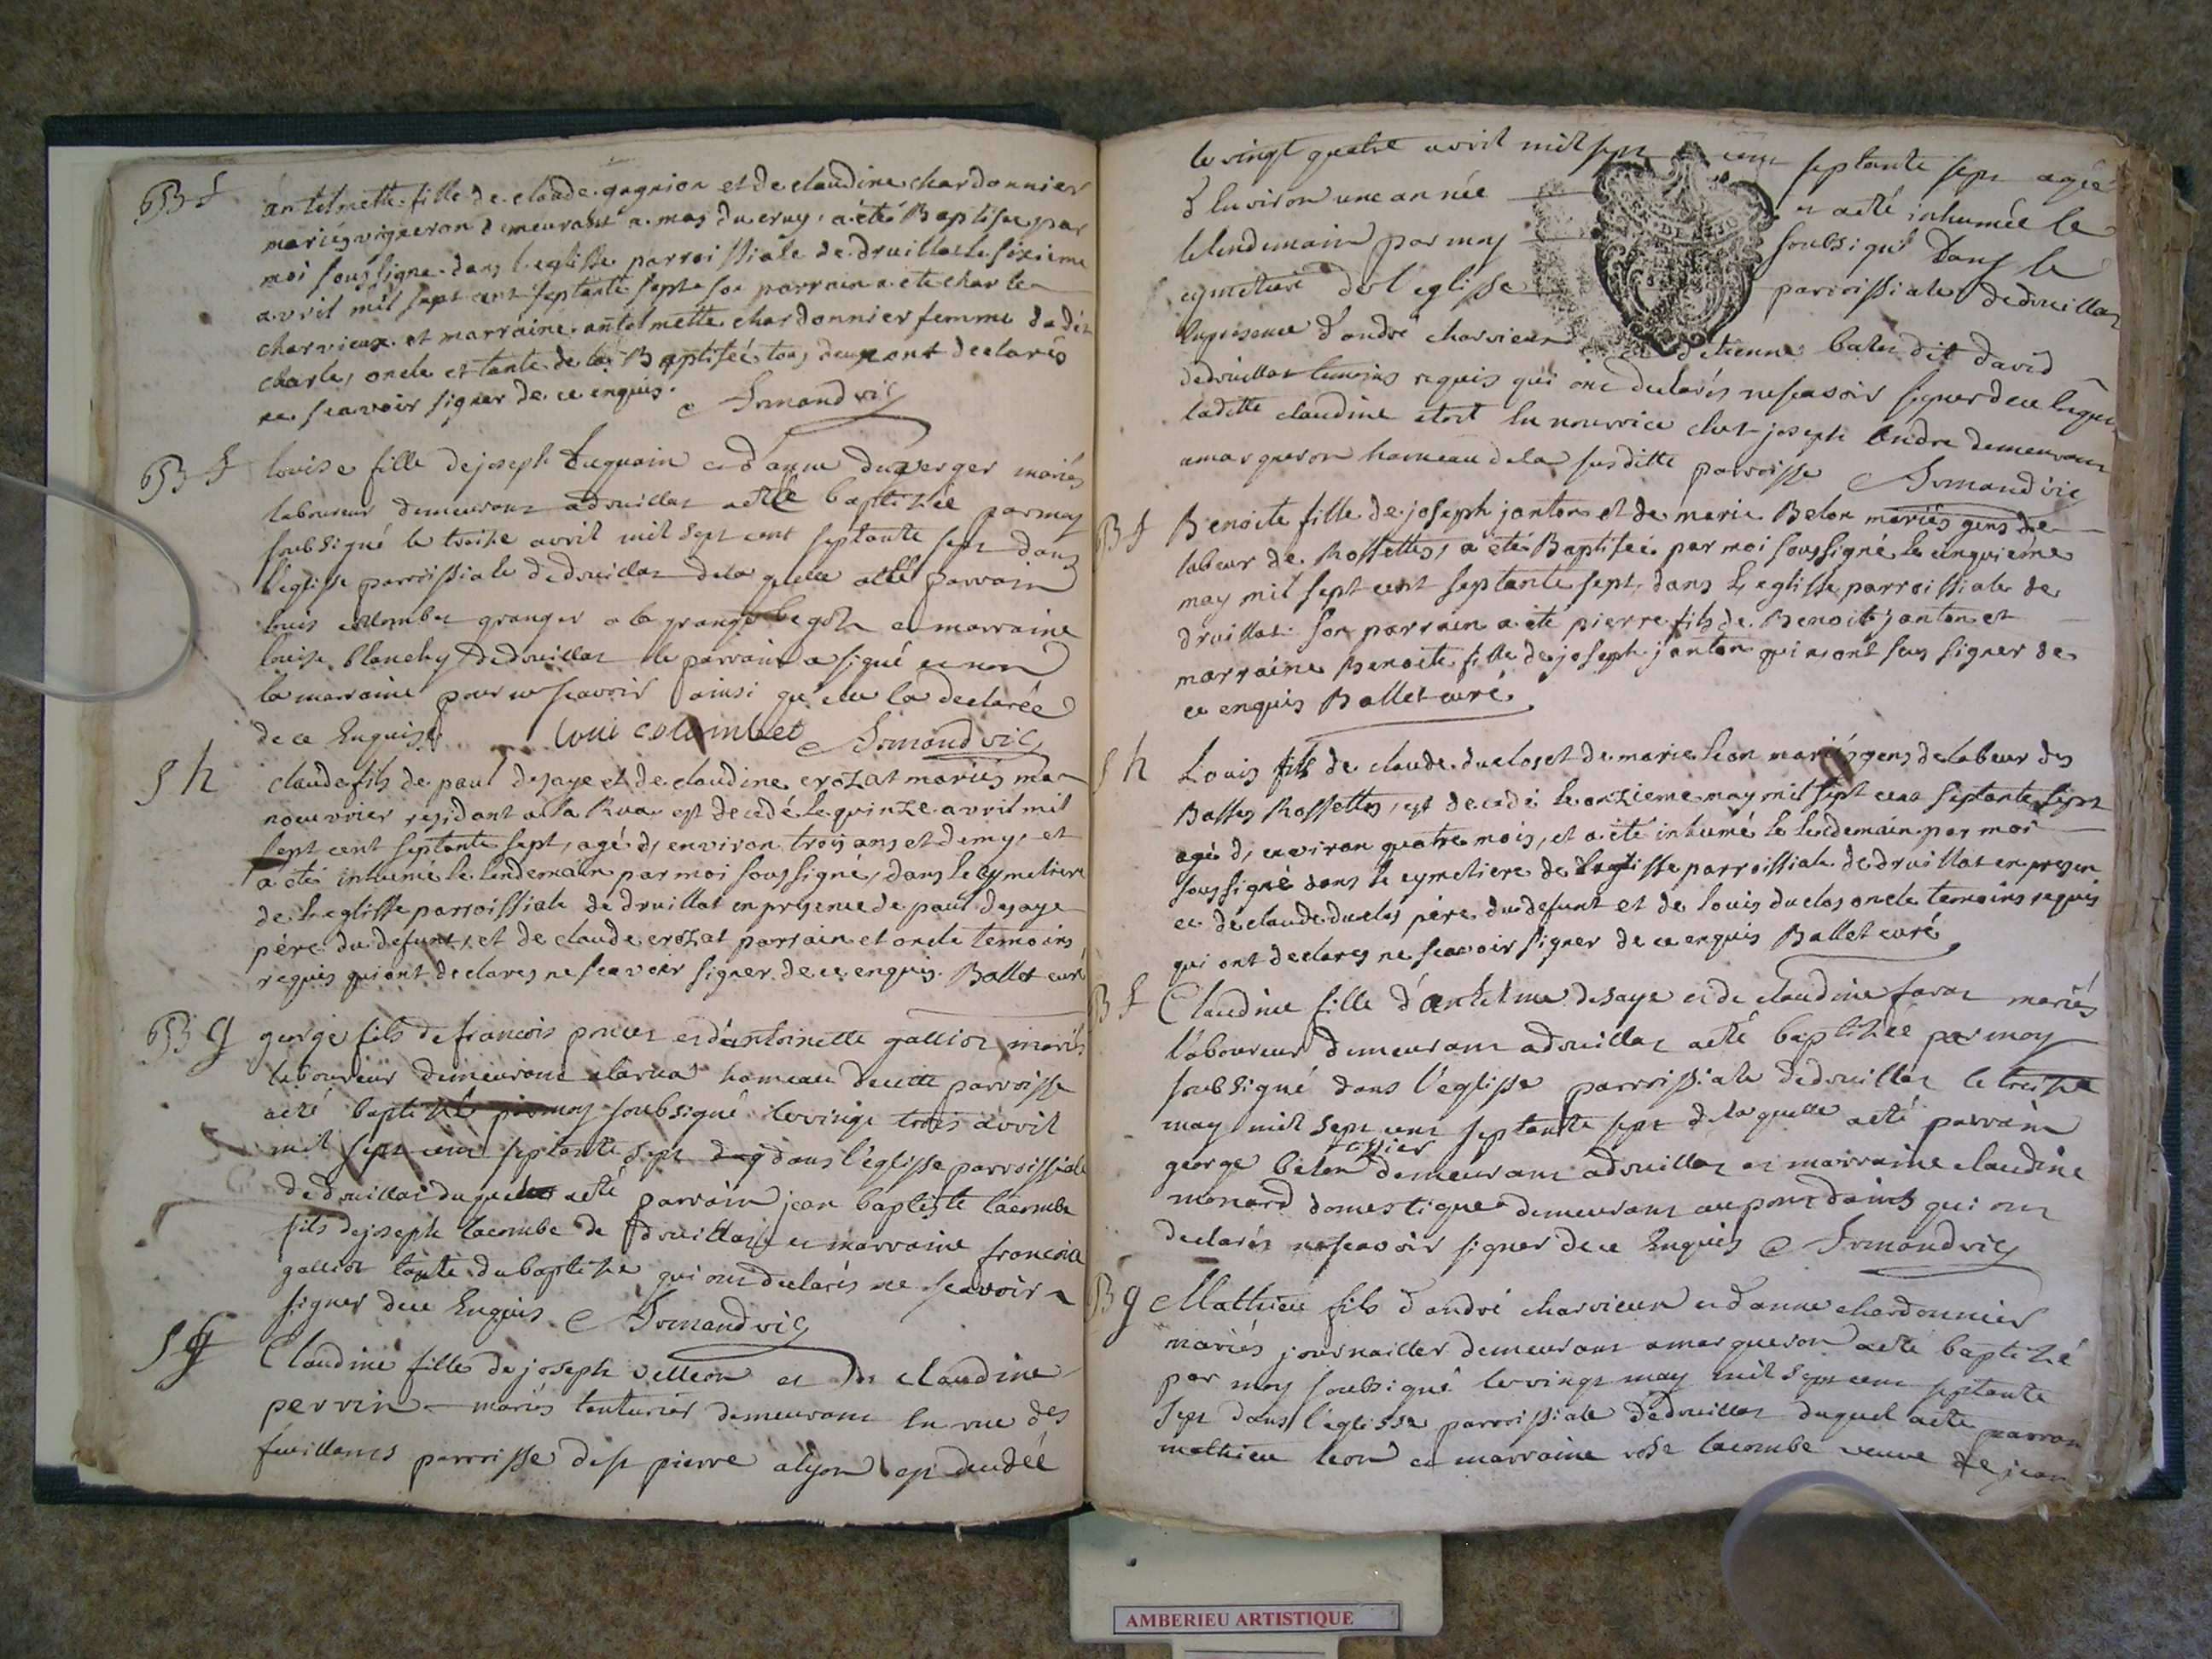 B f
antelmette fille de claude gagnion et de claudine chardonnier
mariés vigneron demeurant a mas du cruy, a été Baptisée par
moi soussigné dans l'eglisse parroissiale de druillat le sixieme
avril mil sept cent septante sept son parrain a ete charle
charvieux et marraine antelmette chardonnier femme du dit
charle, oncle et tante de la Baptisée tous deux ont declarés
ne scavoir signer de ce enquis.
Armand vic
B f
louise fille de joseph et d'anne duverger mariés
laboureur demeurant a druillat a esté baptizée par moy
soubsigné le treize avril mil sept cent septante sept dans
l'eglisse parroissiale de druillat de la quelle a esté parrain
louis colombet granger a la grange et marraine
louise blanchy de druillat le parrain a signé et non
la marraine pour ne scavoir ainsi qu'elle la declarée
de ce Enquise
loui colambet Armand vic
S h
claude fils de paul desaye et de claudine crozat mariés ma-
nouvrier residant a la Rua est decedé le quinze avril mil
sept cent septante sept, agé d, environ trois ans et demy, et
a été inhumé le lendemain par moi soussigné, dans le cymetiere
de L eglisse parroissiale de druillat en presence de paul desaye
pére du defunt, et de claude crozat parrain et oncle temoins
requis qui ont declares ne scavoir signer de ce enquis. Ballet curé
B g
george fils de francois poncet et d'antoinette galliot mariés
laboureur demeurant a la rua hameau de cette parroisse
a eté baptizé par moy soubsigné le vingt trois avril
mil sept cent septante sept dans l'eglisse parroissiale
de druillat du quel a eté parrain jean baptiste lacombe
fils de joseph lacombe de druillat et marraine francoise
galliot tante du baptizé qui ont declarés ne scavoir
signer de ce Enquis Armand vic
S f
Claudine fille de joseph velleon et de claudine
perrin mariés tenturier demeurant en rue des
feuillants parroisse de st pierre a lyon est decedée
le vingt quatre avril mil sept cent septante sept agée
d'Environ une année et a eté inhumée le
lendemain par moy soubsigné Dans le
cymetiere de l'eglisse parroissiale de druillat
En presence d'andré charvieux d'etienne dit david
de druillat temoins requis qui ont declarés ne scavoir signer de ce Enquis
la ditte claudine etoit En nourrice chez joseph Andre demeurant
a marqueron hameau de la susditte parroisse Armand vic
B f
Benoite fille de joseph janton et de marie Belon mariés gens de
labeur de Rossettes, a été Baptisée par moi soussigné le cinquieme
may mil sept cent septante sept, dans L eglisse parroissiale de
druillat son parrain a été pierre fils de Benoit janton et
marraine Benoite fille de joseph janton qui n'ont sceu signer de
ce enquis Ballet curé
S h
Louis fils de claude duclos et de marie leon mariés gens de labeur des
Basses Rossettes, est decedé le onzieme may mil sept cent septante sept
agé d, environ quatre mois, et a été inhumé le lendemain par moi
soussigné dans le cymetiere de L'eglisse parroissiale de druillat en presen
ce de claude duclos pére du defunt et de louis duclos oncle temoins requis
qui ont declares ne scavoir signer de ce enquis Ballet curé
B f
Claudine fille d'antelme desaye et de claudine favat mariés
laboureur demeurant a druillat a eté baptizée par moy
soubsigné dans l'eglisse parroissiale de druillat le treize
may mil sept cent septante sept de la quelle a eté parrain
george belon tissier demeurant a druillat et marraine claudine
monard domestique demeurant au pont dains qui ont
declarés ne scavoir signer de ce Enquis Armand vic
B g
Mathieu fils d'andré charvieux et d'anne chardonnier
mariés journailler demeurant a marqueron a eté baptizé
par moy soubsigné le vingt may mil sept cent septante
sept dans l'eglisse parroissiale de druillat duquel a eté parrain
mathieu leon et marraine rose lacombe veuve de jean
AMBERIEU ARTISTIQUE